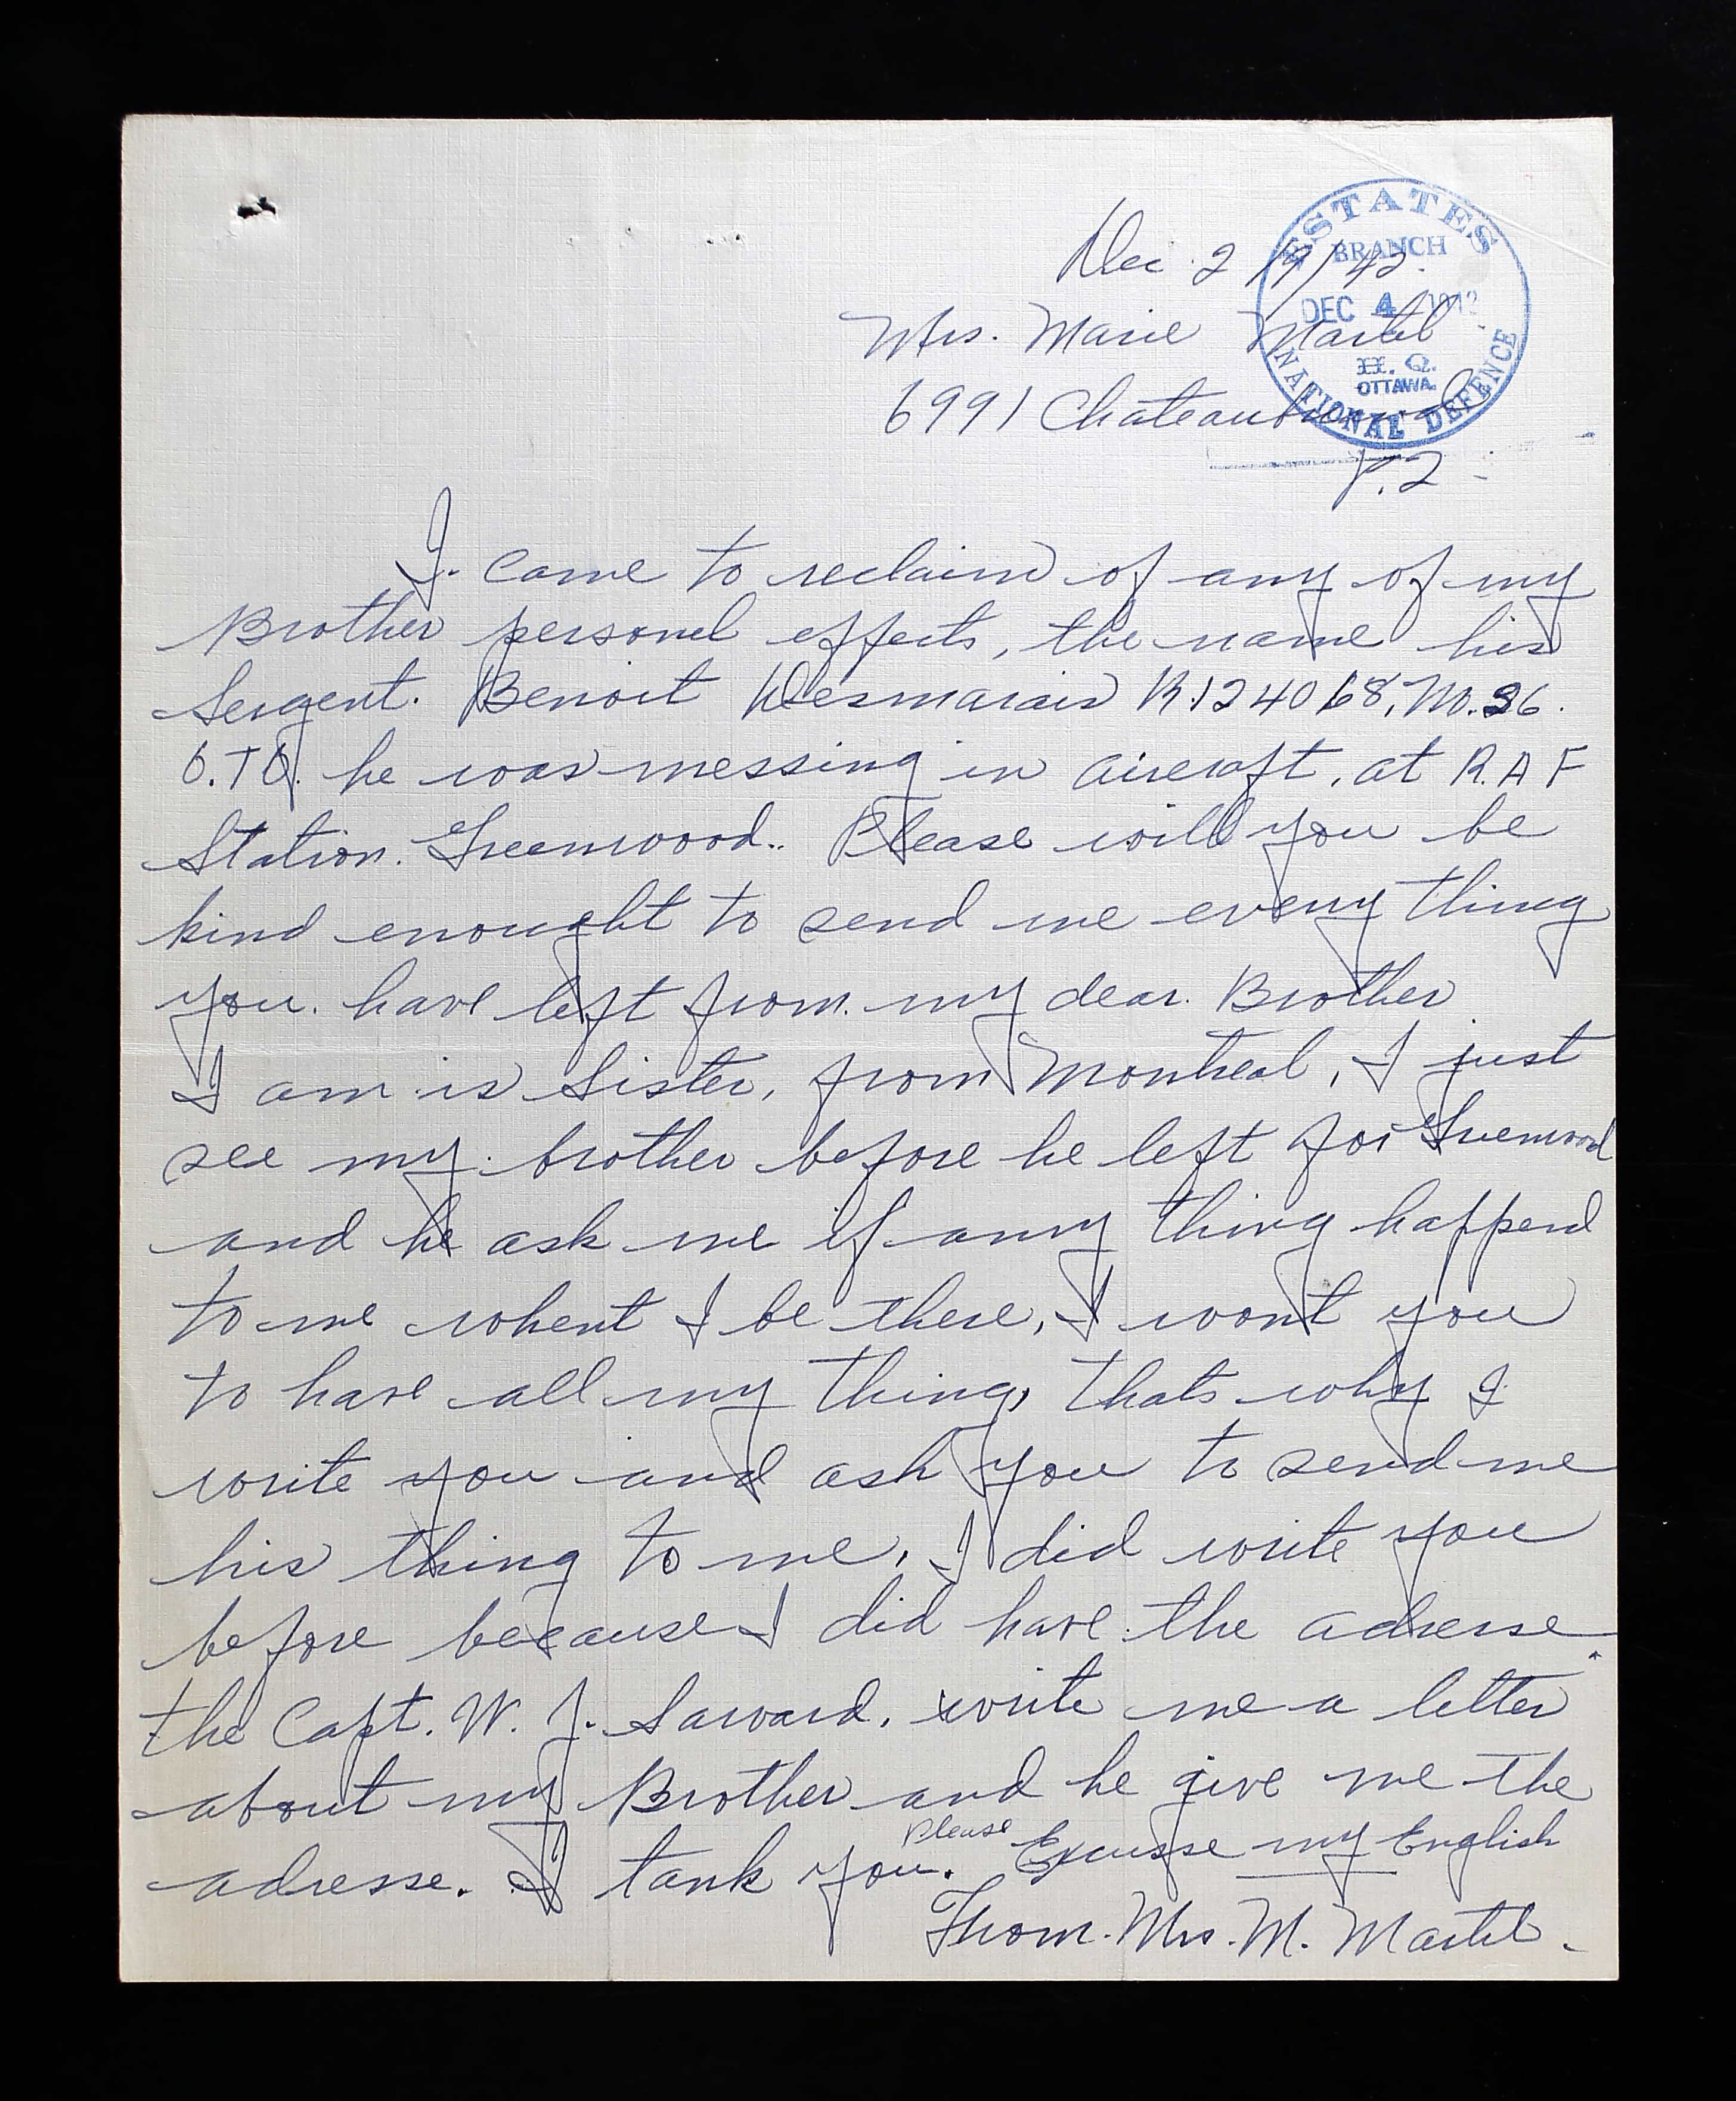 ESTATES
BRANCH
DEC 4 1942
H. Q.
OTTAWA.
NATIONAL DEFENCE
Dec 2 /42.
Mrs. Marie Martel
6991 Chateaubriand
I. Come to reclaim of any of my
Brother personel effects, the name his
Sergent. Benoit Desmarais R.124068, No. 36.
O.T.U. he was messing in aircraft, at R.A F
Station. Greenwood.. Please will you be
kind enought to send me every thing
you. have left from. my dear. Brother
I am is Sister, from Montreal, I just
see my. brother before he left for Greenwood
and he ask me if any thing happend
to me whent I be there, I wont you
to have all my thing, thats why I
write you and ask you to send me
his thing to me, I did write you
before because I did have the adresse.
the Capt. W. J. write me a letter
about my Brother and he give me the
adresse. I tank you. Please Excusse my English
From. Mrs. M. Martel.